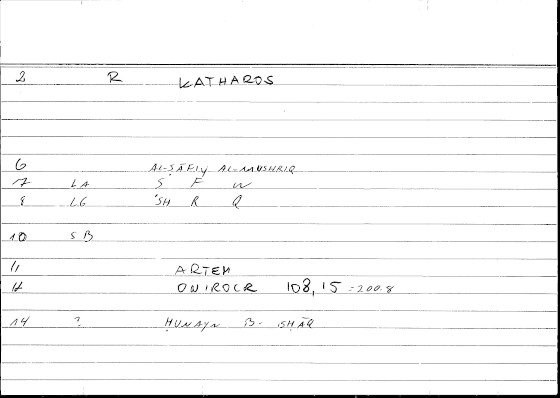 2 R KATHAROS
6 AL-ṢĀFIY AL-MUSHRIQ
7 LA Ṣ F W
8 LG SH R Q
10 SB
11 ARTEM
12 ONIROCR 108,15 = 200.8
14 ? ḤUNAYN B- ISḤĀQ